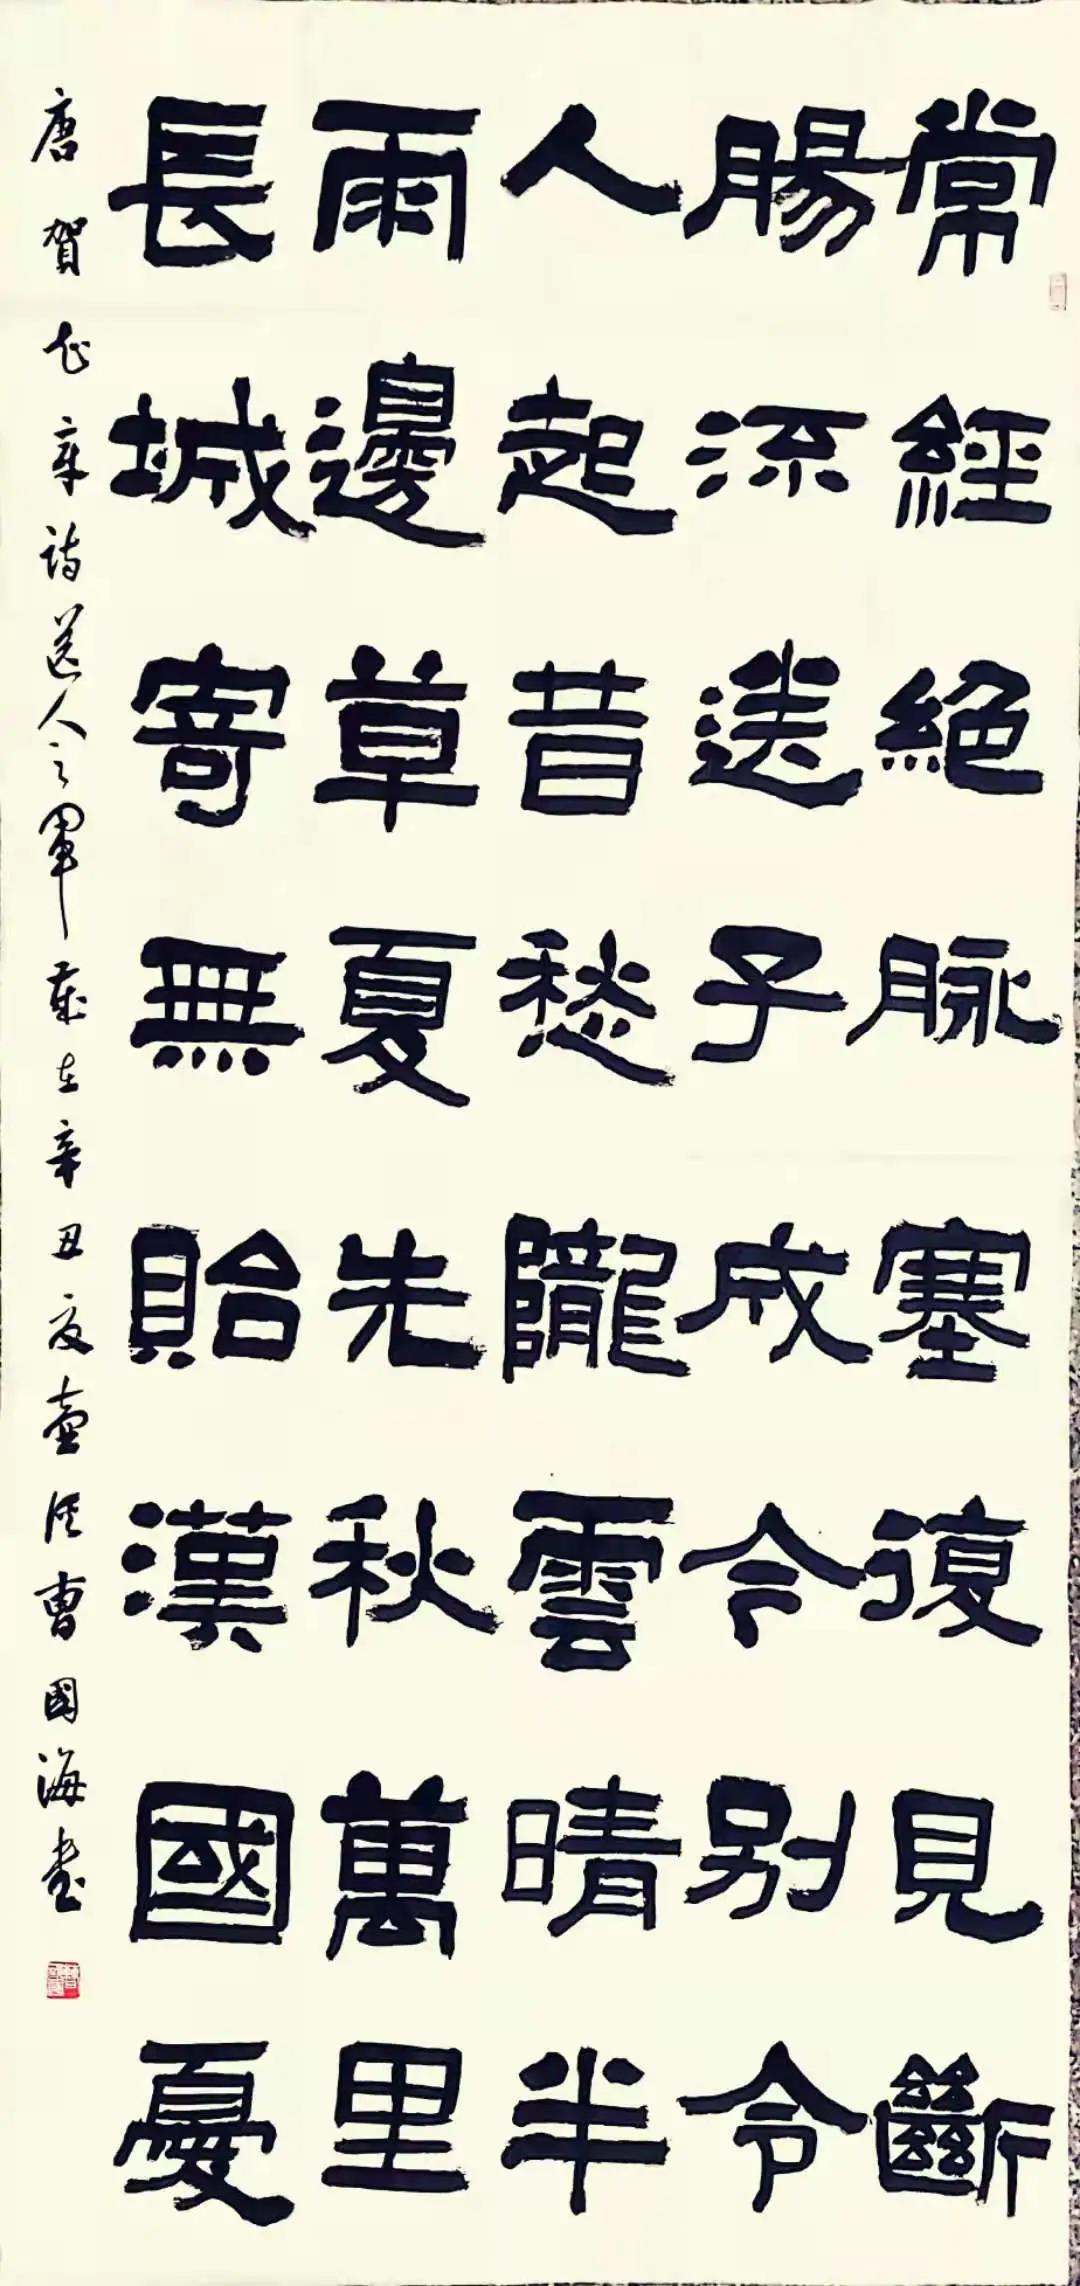 常經絕脉塞復見斷
腸流送子成今别令
人起昔愁隴雲晴半
雨邊草夏先秋萬里
長城寄無貽漢國憂
唐賀知章詩送人之軍歲在辛丑夏壺曹國海書